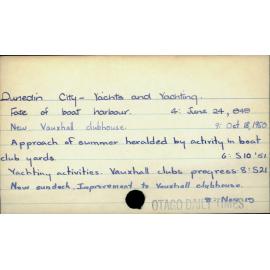 Dunedin City - Yachts and Yachting.
Fate of boat harbour. 4: June 24, 
New Vauxhall clubhouse. 9: Oct 18, 1950
Approach of summer heralded by activity in boat
club yards. 6: S 10 '51
Yachting activities. Vauxhall clubs progress. 8: S21
New sundeck. Improvement to Vauxhall clubhouse.
8: Nov 15
OTAGO DAILY TIMES